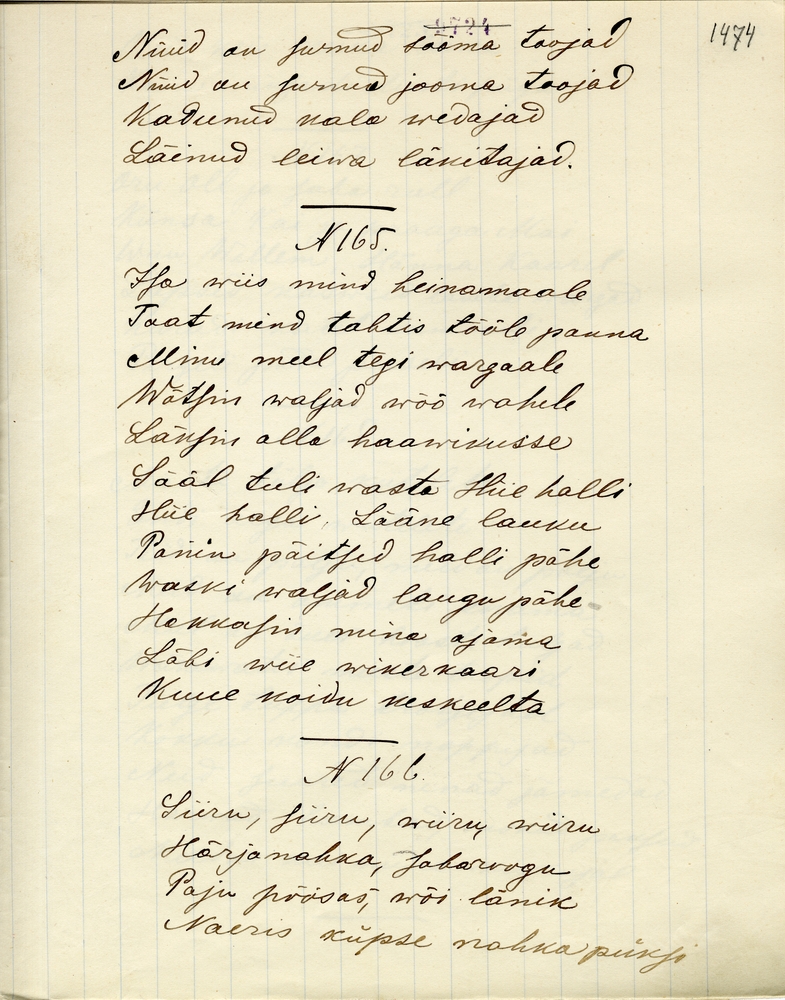 2724
1474
Nüüd on surnud sööma toojad
Nüüd on surnud jooma toojad
Kadunud kala wedajad
Läinud leiwa läkitajad.
N 165.
Isa wiis mind heinamaale
Taat mind tahtis tööle panna
Minu meel tegi wargaale
Wõtsin waljad wöö wahele
Läksin alla haawikusse
Sääl tuli wasta Hiie halli
Hiie halli, Lääne lauku
Panin päitsed halli pähe
Waski waljad laugu pähe
Hakkasin mina ajama
Läbi wiie wikerkaari
Kuue koidu keskeelta
N 166.
Siiru, siiru, wiiru, wiiru
Härjanahka, sabaroogu
Paju põõsas, wõi länik
Naeris küpse nahka püksi